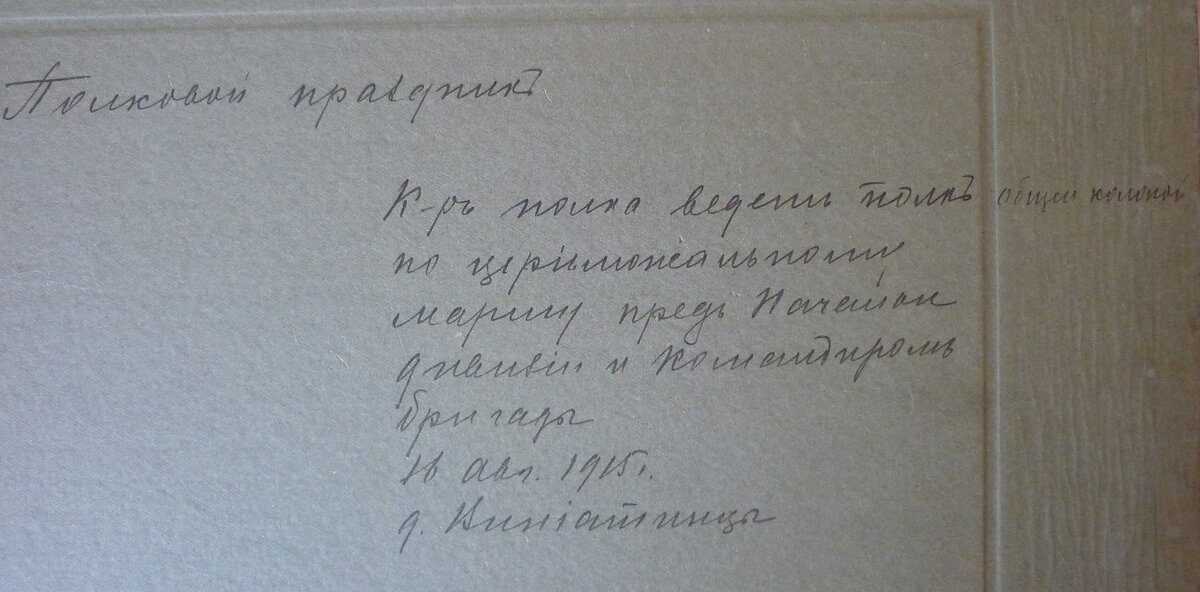 Полковой праздникъ
К-ръ полка ведетъ полкъ общей колоной
по церимоніальному
маршу предъ Начальн
дивизіи и командиромъ
бригады
16 авг. 1915 г.
д. Виніатинцы